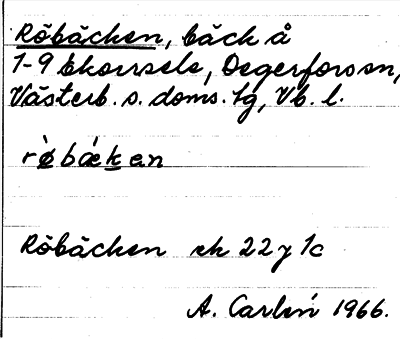 Röbäcken, bäck å
1-9 Ekorrsele, Degerforssn,
Västerb. s. doms. tg, Vb. l.
rø̀bǽken
Röbäcken ek 22 y 1c
A. Carlén 1966.